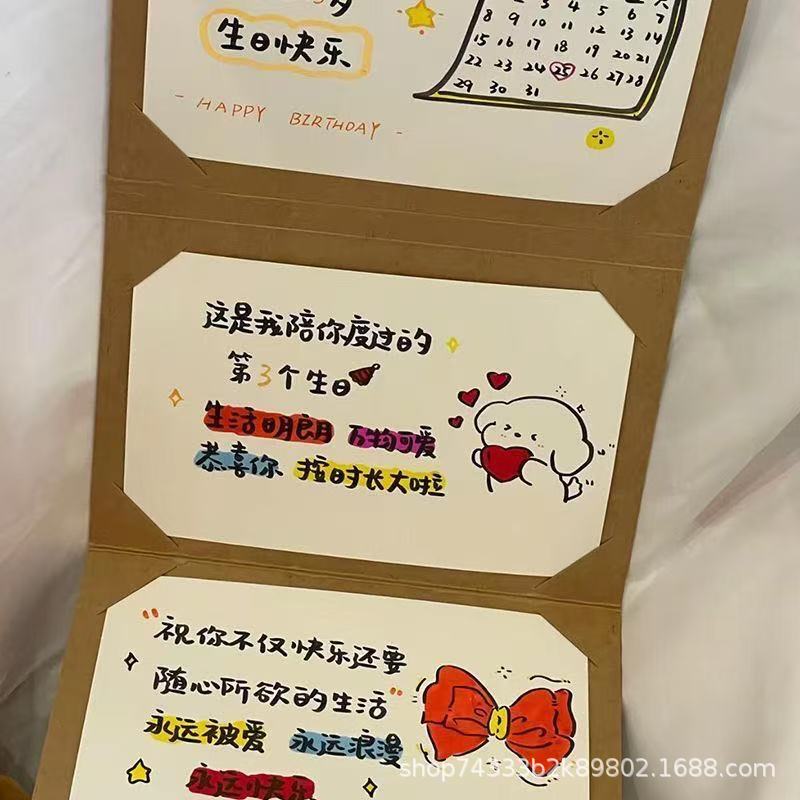 岁
生日快乐
- HAPPY BIRTHDAY -
2 3 4 5 6 7
8 9 10 11 12 13 14
15 16 17 18 19 20 21
22 23 24 25 26 27 28
29 30 31
这是我陪你度过的
第3个生日
生活明朗 万物可爱
恭喜你 按时长大啦
"祝你不仅快乐还要
随心所欲的生活"
永远被爱 永远浪漫
永远快乐
shop74333b2k89802.1688.com